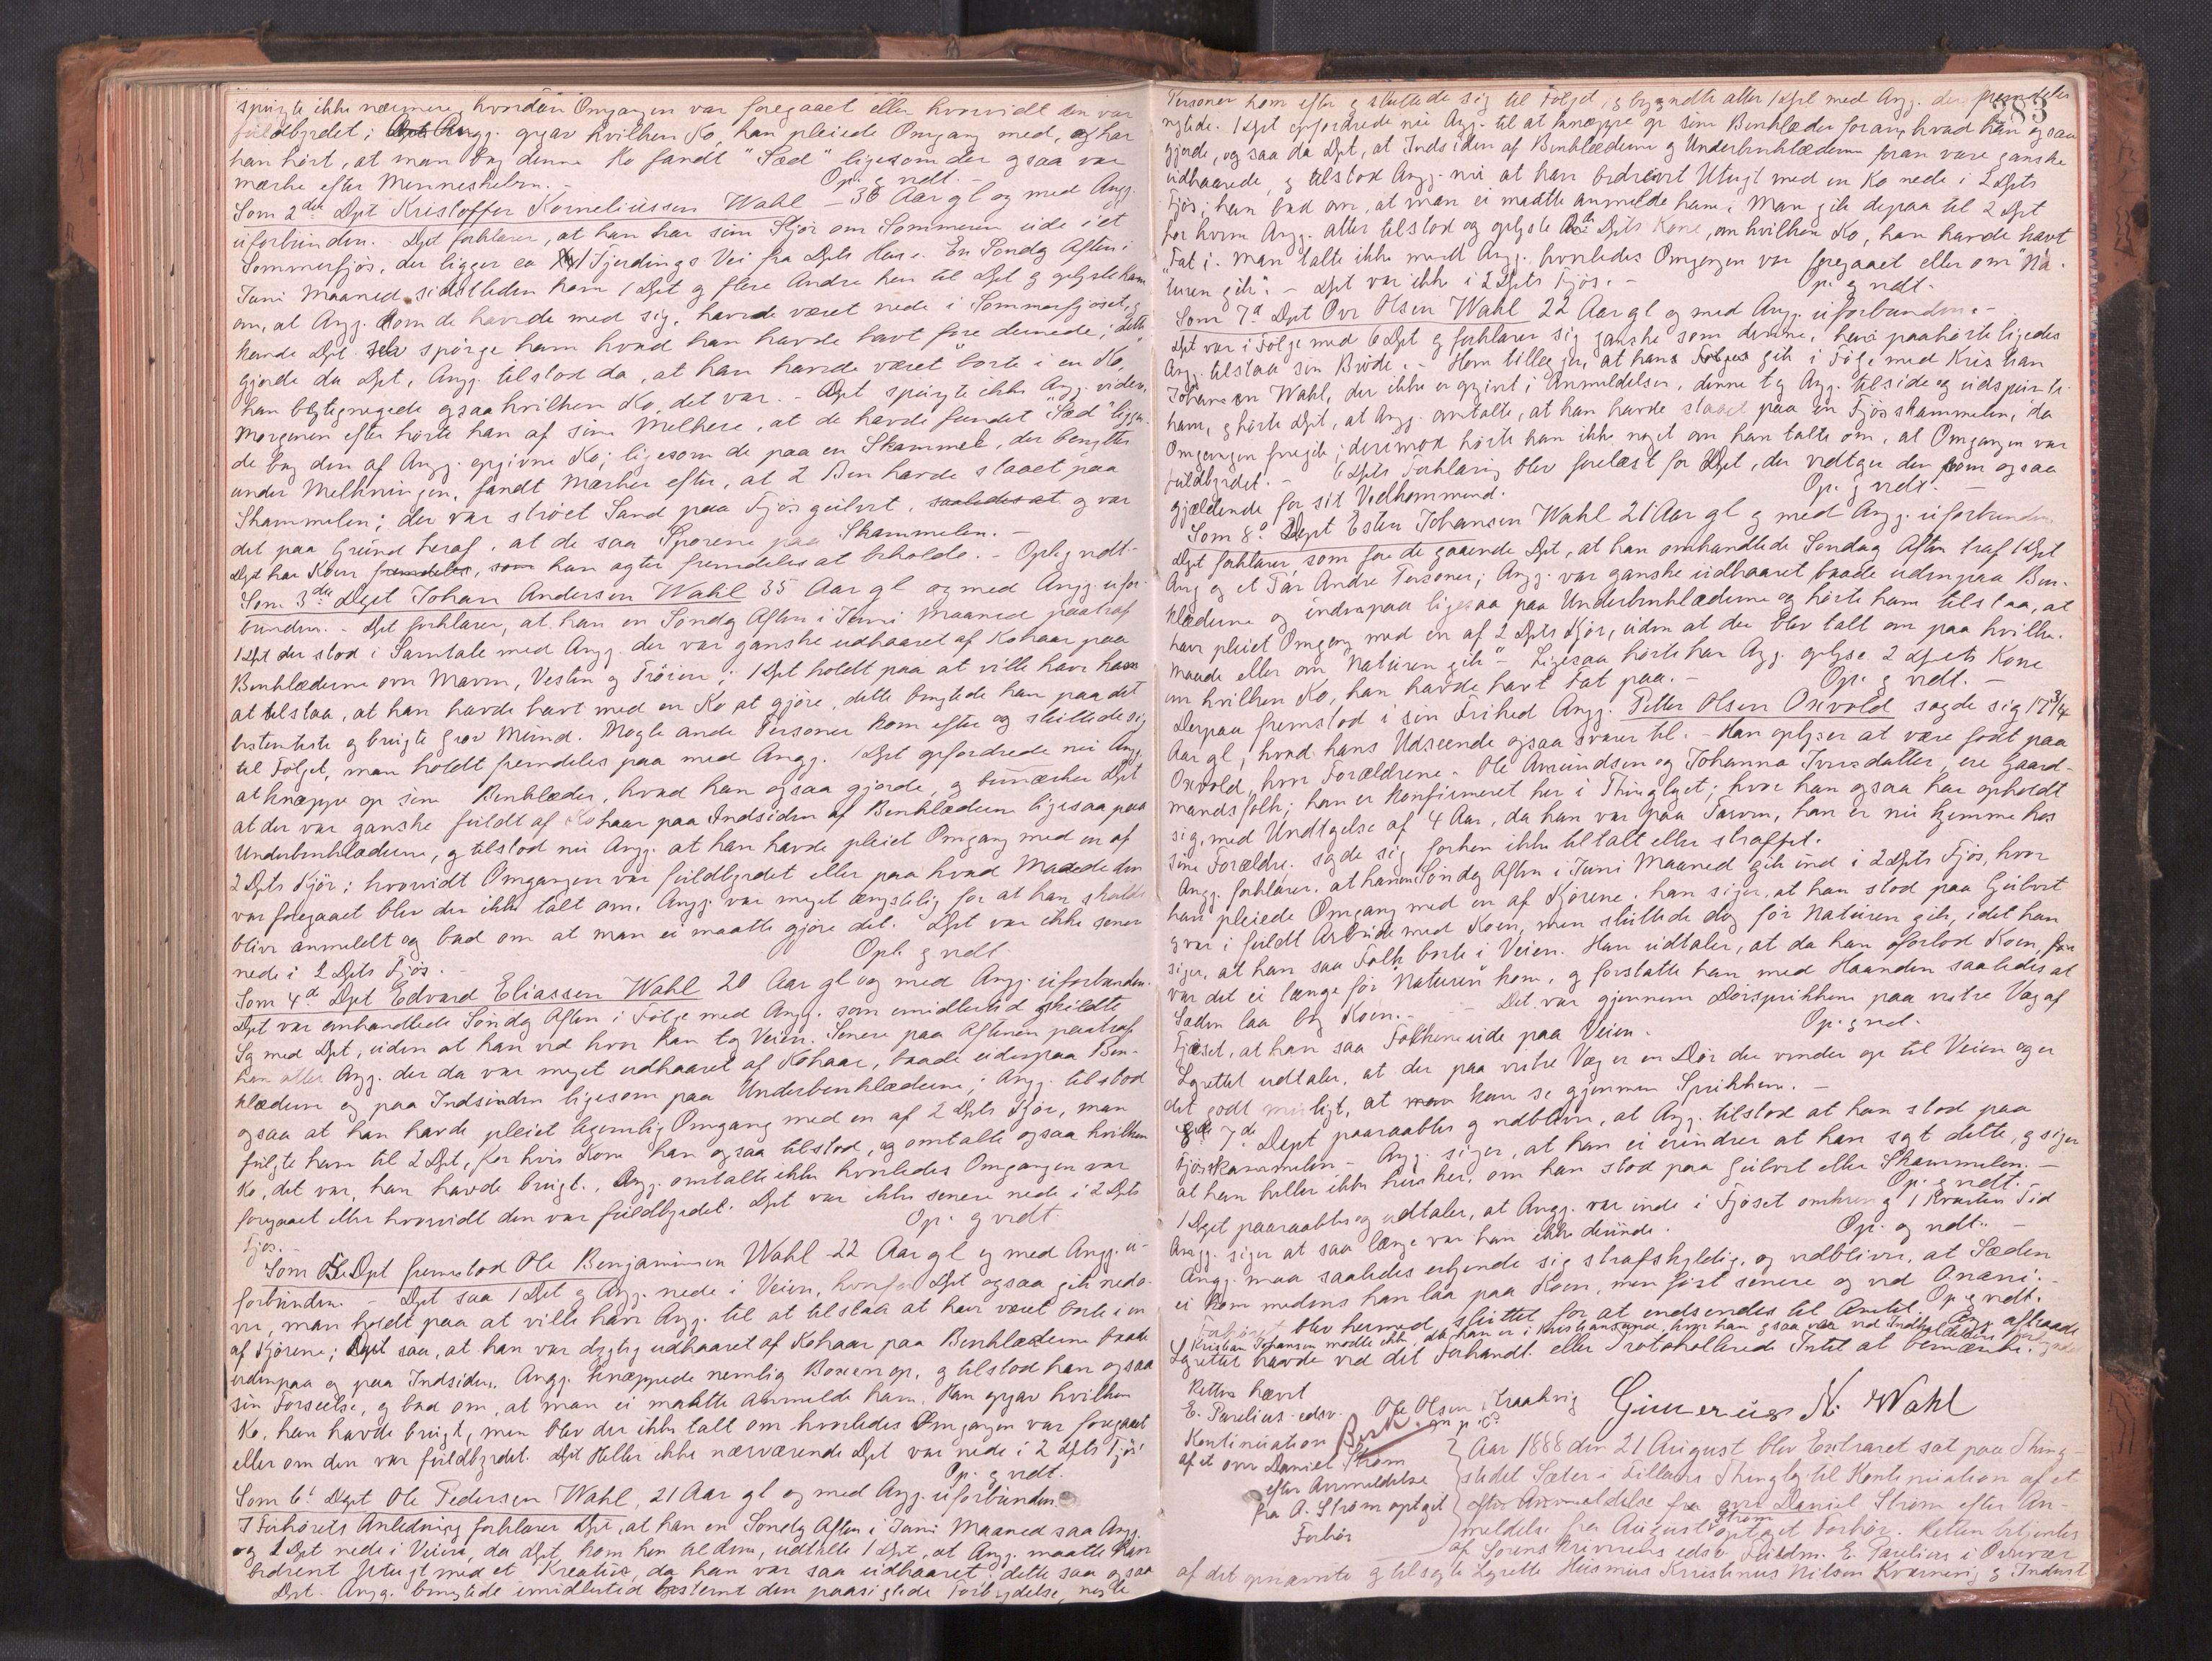 spurgte ikke nærmere, hvordan Omgangen var foregaaet eller hvorvidt den var
fuldbyrdet; Angg. opgav hvilken Ko, han pleiede Omgang med, og har
han hørt, at man bag denne Ko fandt "Sæd" ligesom der ogsaa var
mærke efter Menneskeben. - Op. og vedt. -
Som 2det Dpt Kristoffer Korneliussen Wahl - 36 Aar gl og med Angg.
uforbunden. Dpt forklarer, at han har sine Kjør om Sommeren ude i et
Sommerfjös, der ligger ca 1 Fjerdings Vei fra Dpts Huse. En Søndag Aften i
Juni Maaned sidstleden kom 1 Dpt og flere Andre hen til Dpt og oplyste ham
om, at Angg. som de havde med sig, havde været nede i Sommerfjøset, og
kunde Dpt selv spørge ham hvad han havde havt fore dernede; dette
gjorde da Dpt, Angg. tilstod da, at han havde været "borte i en Ko,
han betegnegede ogsaa hvilken Ko det var. - Dpt spurgte ikke Angg. videre.
Morgenen efter hørte han af sine Melkere, at de havde fundet "Sæd" liggen-
de bag den af Angg. opgivne Ko; ligesom de paa en Skammel, der benyttes
under Melkningen, fandt Mærker efter, at 2 Ben havde staaet paa
Skammelen; der var strøet Sand paa Fjøsgulvet, saaledes at og var
det paa Grund heraf, at de saa Sporene paa Skammelen. -
Dpt har Koen fremdeles, som han agter fremdeles at beholde. - Opl. og vedt. -
Som 3die Dpt Johan Andersen Wahl 35 Aar gl og med Angg. ufor-
bunden. - Dpt forklarer, at han en Søndag Aften i Juni Maaned paatraf
1 Dpt der stod i Samtale med Angg. der var ganske udhaaret af Kohaar paa
Benklæderne over Maven, Vesten og Trøien; 1 Dpt holdt paa at ville have ham
at tilstaa, at han havde havt med en Ko at gjøre, dette benegtede han paa det
bestemteste og brugte grov Mund. Nogle andre Personer kom efter og sluttede sig
til Følget, man holdt fremdeles paa med Angg. 1 Dpt opfordrede nu Angg.
at knæppe op sine Benklæder, hvad han ogsaa gjorde, og bemærker Dpt
at der var ganske fuldt af Kohaar paa Indsiden af Benklæderne ligesaa paa
Underbenklæderne, og tilstod nu Angg. at han havde pleiet Omgang med en af
2 Dpts Kjør; hvorvidt Omgangen var fuldbyrdet eller paa hvad Maade den
var foregaaet blev der ikke talt om. Angg. var meget ængstelig for at han skulde
blive anmeldt og bad om at man ei maatte gjøre det. Dpt var ikke senere
nede i 2 Dpts Fjös. - Opl. og vedt
Som 4de Dpt Edvard Eliassen Wahl 20 Aar gl og med Angg. uforbunden.
Dpt var omhandlede Søndag Aften i Følge med Angg. som imidlertid skildte
Sig med Dpt, uden at han ved hvor han tog Veien. Senere paa Aftenen paatraf
han atter Angg. der da var meget udhaaret af Kohaar, baade udenpaa Ben-
klæderne og paa Indsiden ligesom paa Underbenklæderne; Angg. tilstod
ogsaa at han havde pleiet legemlig Omgang med en af 2 Dpts Kjør, man
fulgte ham til 2 Dpt, for hvis Kone han ogsaa tilstod, og omtalte ogsaa hvilken
Ko, det var, han havde brugt., Angg. omtalte ikke hvorledes Omgangen var
foregaaet eller hvorvidt den var fuldbyrdet. Dpt var ikke senere nede i 2 Dpts
Fjös. - Op. og vedt.
Som 5te Dpt fremstod Ole Benjaminsen Wahl 22 Aar gl og med Angg. u-
forbunden. - Dpt saa 1 Dpt og Angg. nede i Veien, hvorfor Dpt ogsaa gik nedo-
ver, man holdt paa at ville have Angg. til at tilstaa at have været borte i en
af Kjørene; Dpt saa, at han var dygtig udhaaret af Kohaar paa Benklæderne baade
udenpaa og paa Indsiden. Angg. knæppede nemlig Boxen op, og tilstod han ogsaa
sin Forseelse, og bad om, at man ei maatte anmelde ham. Han opgav hvilken
Ko, han havde brugt, men blev der ikke talt om hvorledes Omgangen var foregaaet
eller om den var fuldbyrdet. Heller ikke nærværende Dpt var nede i 2 Dpts Fjös
Op. og vedt.
Som 6t Dpt Ole Pedersen Wahl, 21 Aar gl og med Angg. uforbunden
I Forhørets Anledning forklarer Dpt, at han en Søndag Aften i Juni Maaned saa Angg.
og 1 Dpt nede i Veien, da Dpt kom hen til dem, udtalte 1 Dpt, at Angg. maatte have
bedrevet Utugt med et Kreatur, da han var saa udhaaret, dette saa ogsaa
Dpt. Angg. benegtede imidlertid bestemt den paasigtede Forbrydelse, nogle
83
Personer kom efter og sluttede sig til Følget, og begyndte atter 1 Dpt med Angg. der fremdeles
negtede. 1 Dpt opfordrede nu Angg. til at knæppe op sine Benklæder foran, hvad han ogsaa
gjorde, og saa da Dpt, at Indsiden af Benklæderne og Underbenklæderne foran vare ganske
udhaarede, og tilstod Angg. nu at han bedrevet Utugt med en Ko nede i 2 Dpts
Fjös; han bad om, at man ei maatte anmelde ham. Man gik derpaa til 2 Dpt
for hvem Angg. atter tilstod og oplyste Dpts Kone, om hvilken Ko, han havde havt
"fat i. Man talte ikke med Angg. hvorledes Omgangen var foregaaet eller om "Na-
turen gik". - Dpt var ikke i 2 Dpts Fjös. - Op. og vedt.
Som 7d Dpt Ove Olsen Wahl 22 Aar gl og med Angg. uforbunden. -
Dpt var i Følge med 6 Dpt og forklarer sig ganske som denne, han paahørte ligedes
Angg. tilstaa sin Brøde. - Han tillægger, at hans Følges gik i Følge med Kristian
Johansen Wahl, der ikke er opgivet i Anmeldelsen, denne tog Angg. tilside og udspurgte
ham, og hørte Dpt, at Angg. omtalte, at han havde staaet paa en Fjösskammelen, da
Omgangen foregik; derimod hørte han ikke noget om han talte om, at Omgangen var
fuldbyrdet. - 6 Dpts Forklaring blev forelæst for Dpt, der vedtager den som ogsaa
gjældende for sit Vedkommend. Op. og vedt. -
Som 8d Dpt Esten Johansen Wahl 21 Aar gl og med Angg. uforbunden
Dpt forklarer, som foregaaende Dpt, at han omhandlede Søndag Aften traf 1 Dpt
Angg og et Par Andre Personer; Angg. var ganske udhaaret baade udenpaa Ben-
klæderne og indenpaa ligesaa paa Underbenklæderne og hørte ham tilstaa, at
have pleiet Omgang med en af 2 Dpts Kjør, uden at der blev talt om paa hvilken
Maade eller om "Naturen gik" - Ligesaa hørte han Angg. oplyse 2 Dpts Kone
om hvilken Ko, han havde havt fat paa. - Op. og vedt. -
Derpaa fremstod i sin Frihed Angg. Petter Olsen Oxvold sagde sig 17 3/4
Aar gl, hvad hans Udseende ogsaa svarer til. - Han oplyser at være født paa
Oxvold, hvor Forældrene - Ole Amundsen og Johanna Iversdatter, ere Gaard-
mandsfolk; han er konfirmeret her i Thinglaget; hvor han ogsaa har opholdt
sig, med Undtagelse af 4 Aar, da han var paa Farven, han er nu hjemme hos
sine Forældre; sagde sig forhen ikke tiltalt eller straffet.
Angg. forklarer, at han en Søndag Aften i Juni Maaned gik ind i 2 Dpts Fjös, hvor
han pleiede Omgang med en af Kjørene; han siger, at han stod paa Gulvet
og var i fuldt Arbeide med Koen, men sluttede dog før Naturen gik, idet han
siger, at han saa Folk borte i Veien. Han udtaler, at da han forlod Koen,
var det ei længe før "Naturen" kom, og forstatte han med Haanden saaledes at
Sæden laa bag Koen. - Det var gjennem Dørsprikkene paa vestre Væg af
Fjøset, at han saa Folkene ude paa Veien. - Op. og ved.
Lgrettet udtaler, at der paa vestre Væg er en Dør der vender op til Veien og er
det godt muligt, at man kan se gjennem Sprikkene. -
7d Dept paaraabtes og vedbliver, at Angg. tilstod at han stod paa
Fjösskammelen - Angg. siger, at han ei erindrer at han sagt dette, og siger
at han heller ikke husker, om han stod paa Gulvet eller Skammelen. -
Op. og vedt.
1 Dpt paaraabtes og udtaler, at Angg. var inde i Fjøset omkring 1 Kvarters Tid
Angg. siger at saa længe var han ikke derinde. Op. og vedt. -
Angg. maa saaledes erkjende sig strafskyldig, og vedbliver, at Sæden
ei kom medens han laa paa Koen, men først senere og ved Onani. -
Forhøret blev hermed sluttet for at indsendes til Amtet. Op. og vedt. Angg aftraadte
Kristian Johansen mødte ikke, da han er i Kristiansund, hvor han ogsaa var ved Indkaldelsens
Lgrettet havde ved det Forhandl. eller Protokollerede Intet at bemærke.
Retten hævet
E. Parelius edsv. Ole Olsen Kraakvig Gunerius N. Wahl
m p. P.
Kontinuation
af et over Daniel Strøm
efter Anmeldelse
fra A. Strøm optaget
Forhør
Aar 1888 den 21 August blev Extraret sat paa Thing-
stedet Sæter i Fillens Thinglag til Kontinuation af et
efter Anmeldelse fra over Daniel Strøm efter An-
meldelse fra August Strøm optaget Forhør. Retten betjentes
af Sorenskriverens edsv. Fuldm. E. Parelius i Overvær
af det opnævnte og tilsagte Lgrette Husmus Kristinus Nilsen Kværnevig og Indert